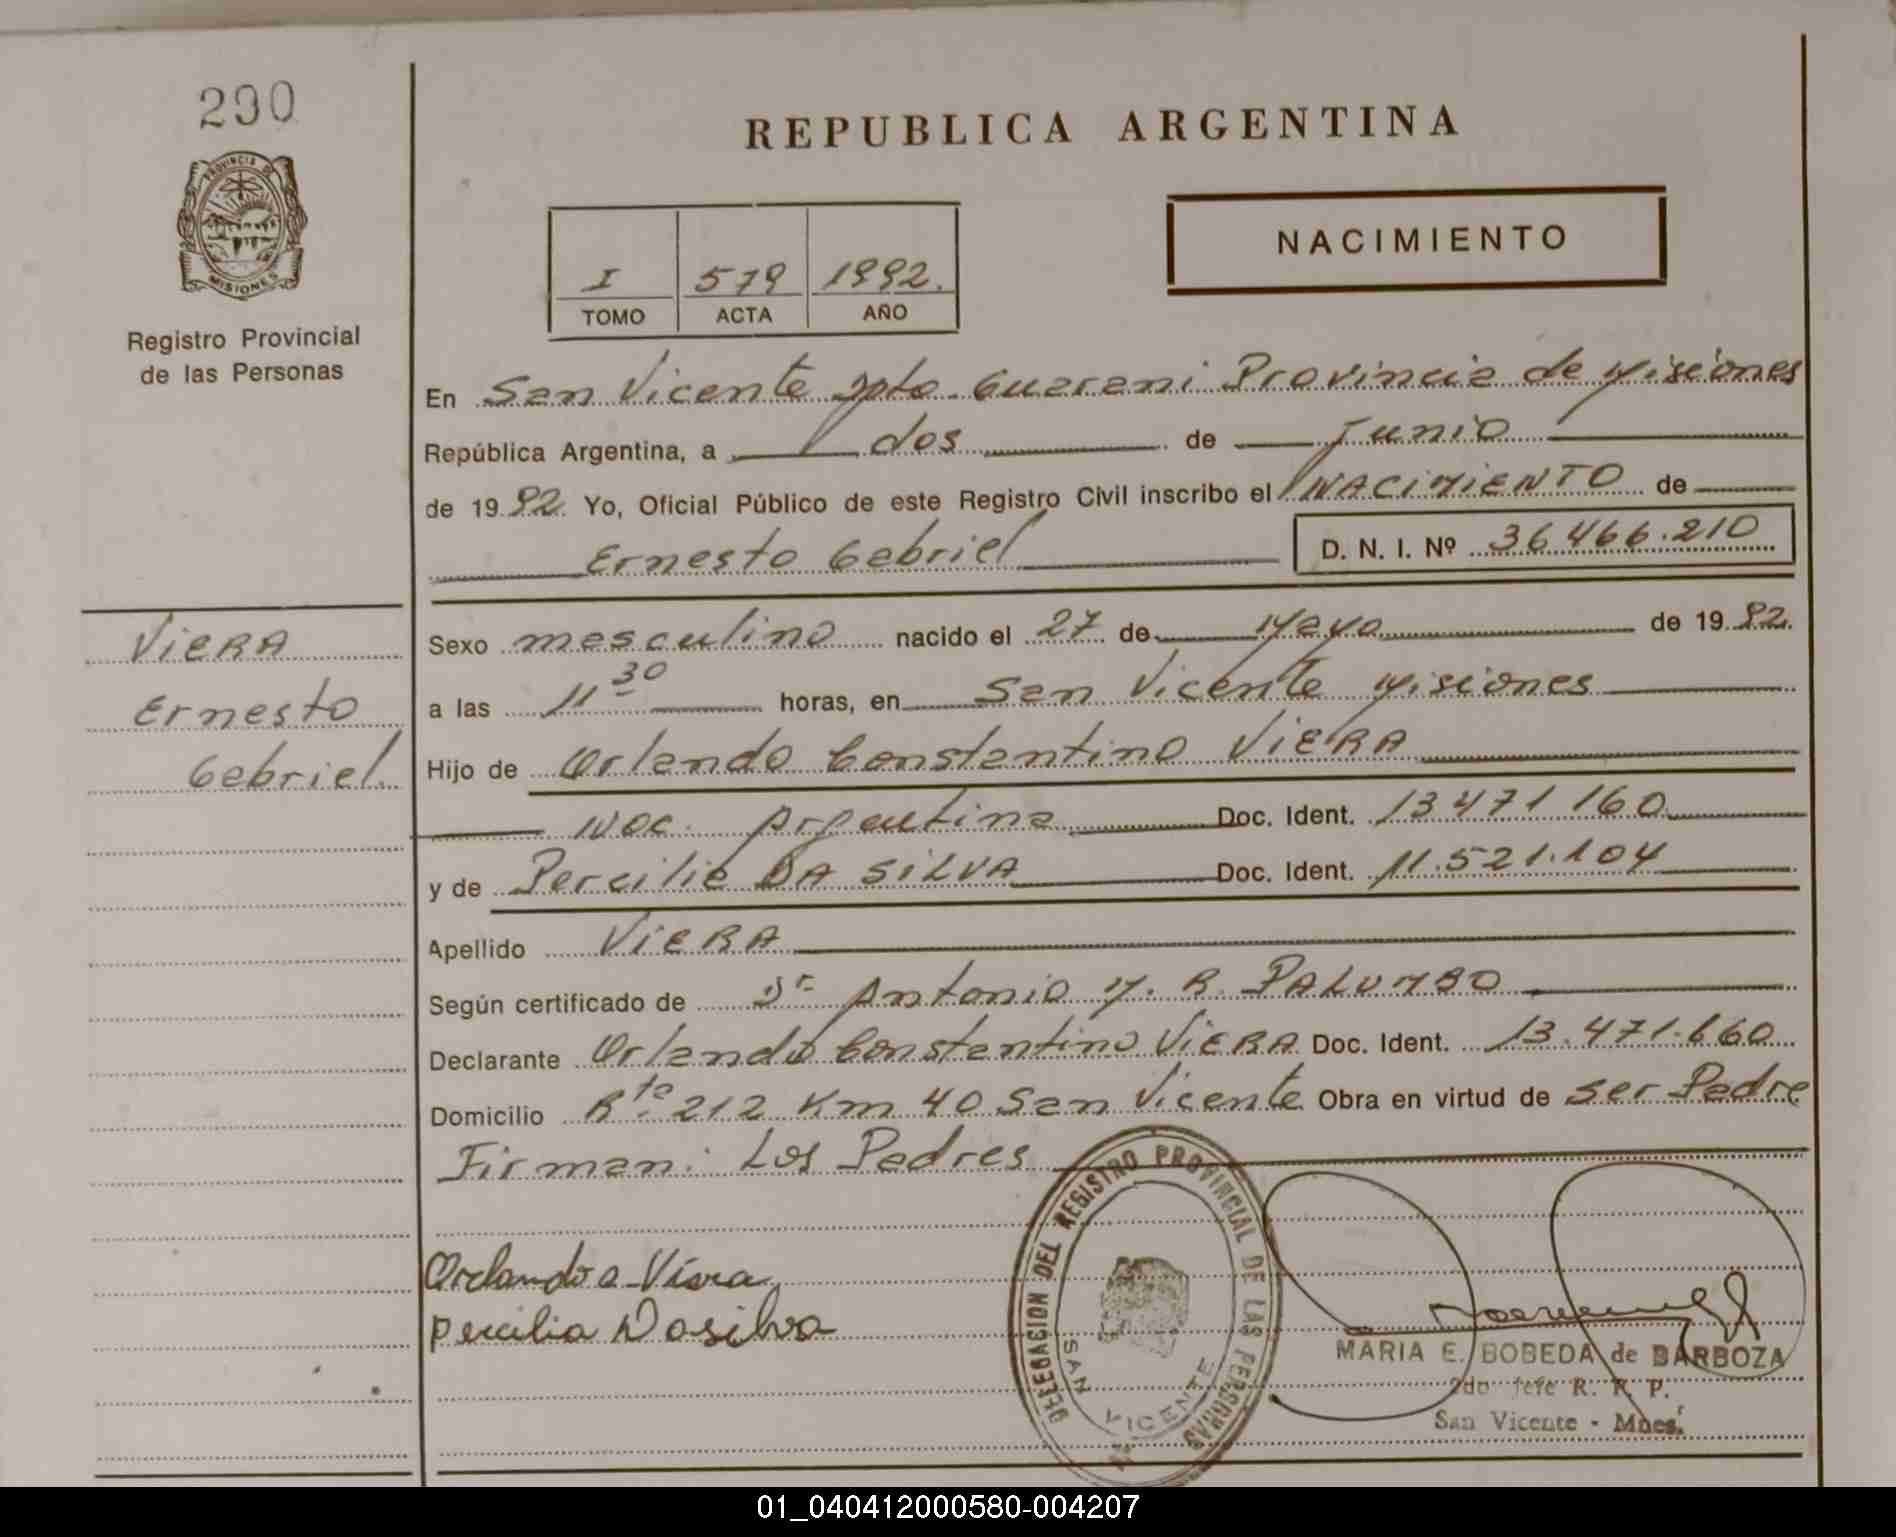 290
PROVINCIA DE
MISIONES
Registro Provincial
de las Personas
VIERA
Ernesto
Gabriel.
REPUBLICA ARGENTINA
I 579 1992.
TOMO ACTA AÑO
NACIMIENTO
En San Vicente Dpto. Guarani Provincia de Misiones
República Argentina, a dos de Junio
de 1992. Yo, Oficial Público de este Registro Civil inscribo el NACIMIENTO de
Ernesto Gabriel D. N. I. Nº 36.466.210
Sexo masculino nacido el 27 de Mayo de 1992.
a las 11 30 horas, en San Vicente Misiones
Hijo de Orlando Constantino VIERA
Nac. Argentina Doc. Ident. 13.471.160
y de Percilia DA SILVA Doc. Ident. 11.521.104
Apellido VIERA
Según certificado de Dr Antonio M. R. PALUMBO
Declarante Orlando Constantino VIERA Doc. Ident. 13.471.660
Domicilio Rta 212 Km 40 San Vicente Obra en virtud de ser Padre
Firman: Los Padres
Orlando Viera
Percilia Dasilva
DELEGACION DEL REGISTRO PROVINCIAL DE LAS PERSONAS
SAN VICENTE
MARIA E. BOBEDA de BARBOZA
2do Jefe R. P. P.
San Vicente - Mnes.
01_040412000580-004207